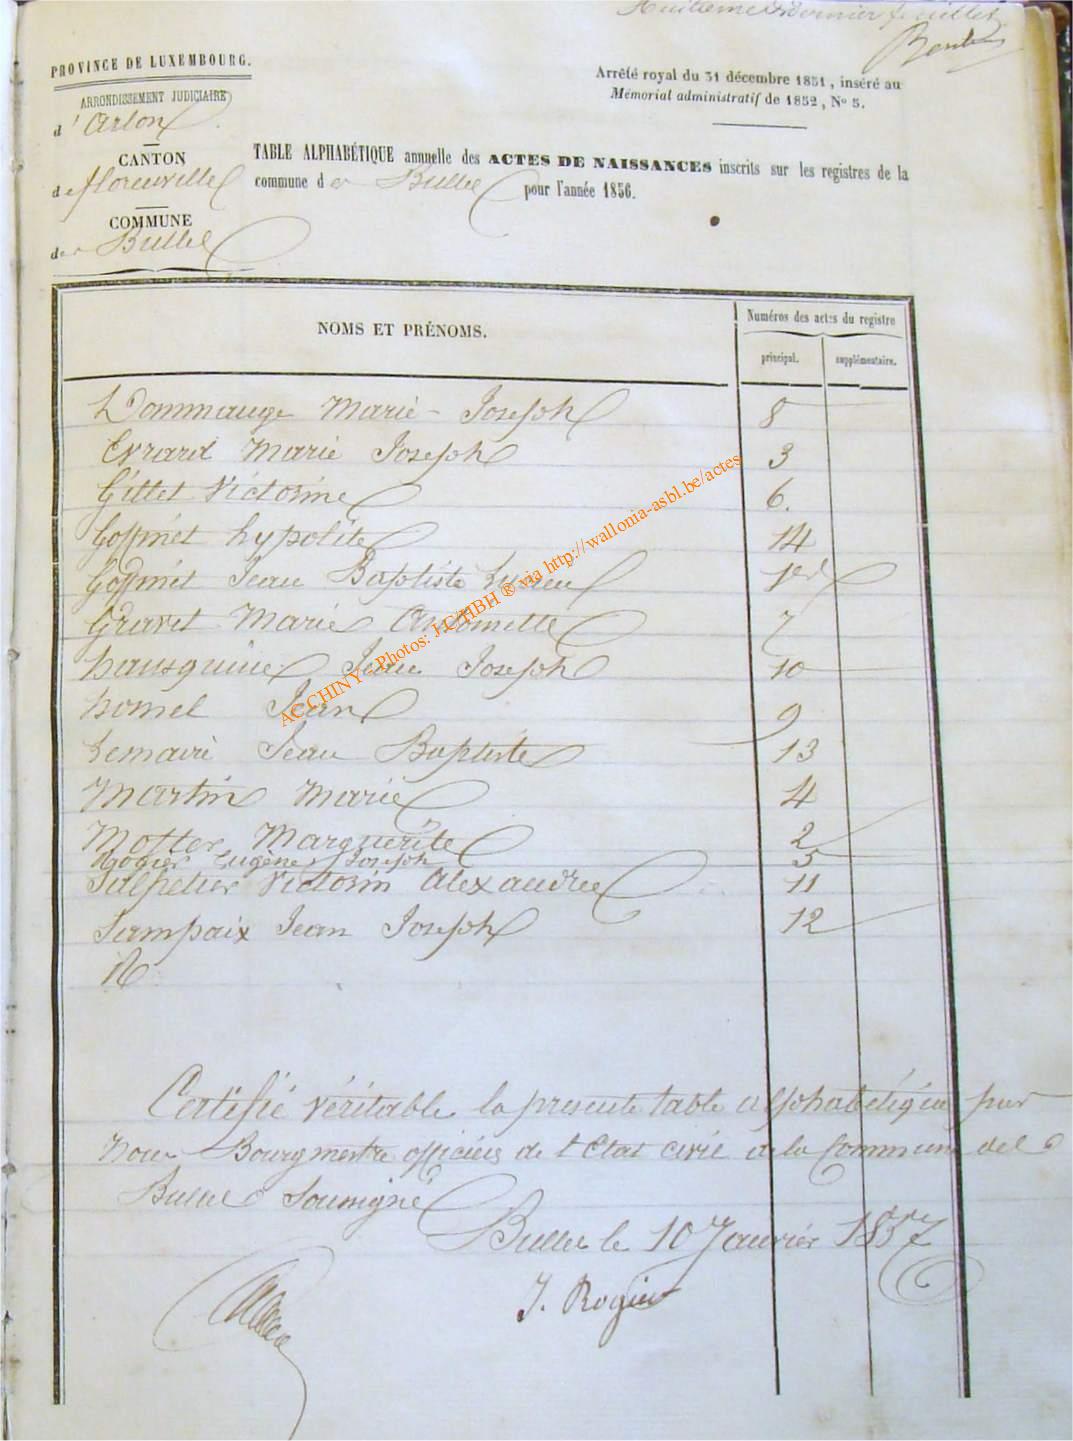 Huitième et dernier feuillet
PROVINCE DE LUXEMBOURG.
ARRONDISSEMENT JUDICIAIRE
d'Arlon
CANTON
de florenville
COMMUNE
de Bulle
Arrêté royal du 31 décembre 1851, inséré au
Mémorial administratif de 1852, No 5.
TABLE ALPHABÉTIQUE annuelle des ACTES DE NAISSANCES inscrits sur les registres de la
commune de Bulle pour l'année 1856.
NOMS ET PRÉNOMS.
Numéros des actes du registre
principal. supplémentaire.
Dommange Marie-Joseph 8
Evrard Marie Joseph 3
Gillet Victorine 6.
Goffinet hypolite 14
Goffinet Jean Baptiste Lucien 1er
Gravet Marie Antoinette 7
hansquine Jean Joseph 10
homel Jean 9
Lemaire Jean Baptiste 13
Martin Marie 4
Motter Marguerite 2
Rogier Eugène Joseph 5
Salpetier Victorin Alexandre 11
Sampaix Jean Joseph 12
Certifié véritable la presente table alphabétique par
nous Bourgmestre officier de l'Etat civil de la Commune de
Bulle Soussigné
Bulle le 10 Janvier 1857
J. Rogier
ACCHINY - Photos: J.C/HBH ® via http://wallonia-asbl.be/actes